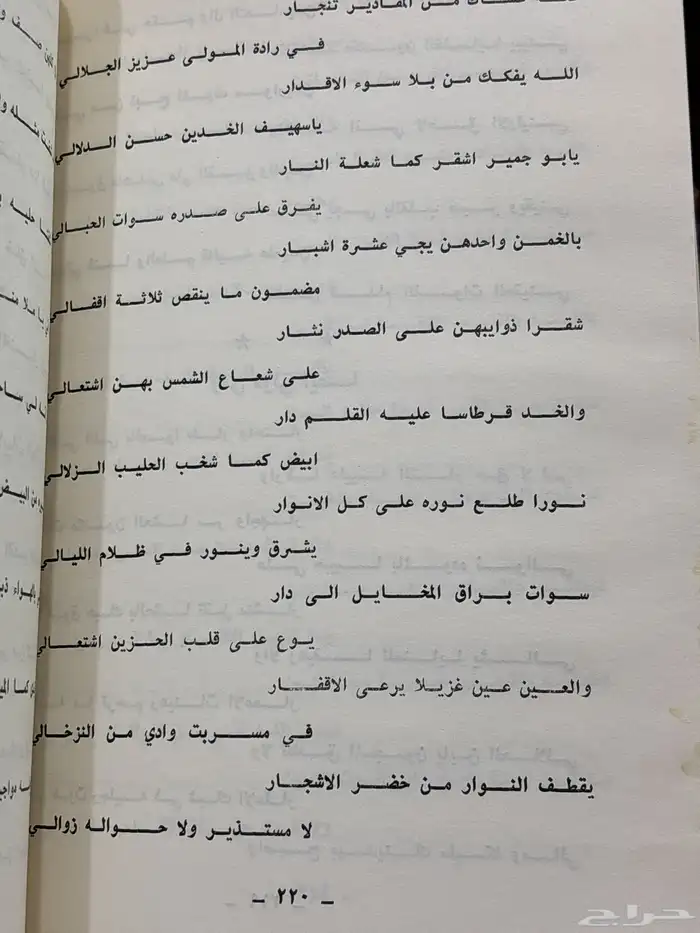 من المقادير تنجار
في رادة المولى عزيز الجلالي
الله يفكك من بلا سوء الاقدار
ياسهيف الخدين حسن الدلالي
يابو جمير اشقر كما شعلة النار
يفرق على صدره سوات الحبالي
بالخمن واحدهن يجي عشرة اشبار
مضمون ما ينقص ثلاثة اقفالي
شقرا ذوايبهن على الصدر نثار
على شعاع الشمس بهن اشتعالي
والخد قرطاسا عليه القلم دار
ابيض كما شخب الحليب الزلالي
نورا طلع نوره على كل الانوار
يشرق وينور في ظلام الليالي
سوات براق المخايل الى دار
يوع على قلب الحزين اشتعالي
والعين عين غزيلا يرعى الاقفار
في مسربت وادي من النزخالي
يقطف النوار من خضر الاشجار
لا مستذير ولا حواله زوالي
ـ ٢٢٠ ـ
حراج